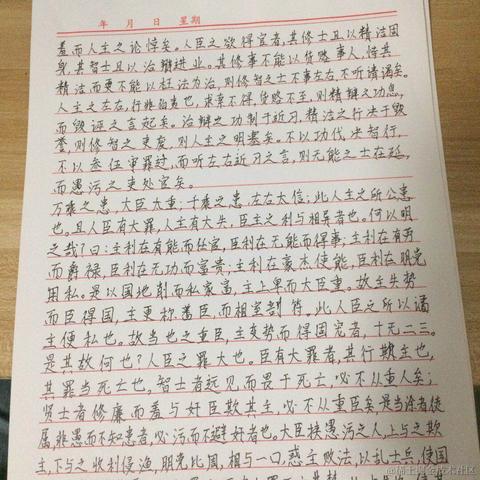 年 月 日 星期
羞而人主之论悖矣。人臣之欲得官者,其修士且以精洁固
身,其智士且以治辩进业。其修事不能以货赂事人,恃其
精洁而更不能以枉法为治,则修智之士不事左右,不听请谒矣。
人主之左右,行非伯夷也,求索不得,货赂不至,则精辩之功息,
而毁诬之言起矣。治辩之功制于近习,精洁之行决于毁
誉,则修智之吏废,则人主之明塞矣。不以功伐决智行,
不以参伍审罪过,而听左右近习之言,则无能之士在廷,
而愚污之吏处官矣。
万乘之患,大臣太重;千乘之患,左右太信;此人主之所公患
也。且人臣有大罪,人主有大失,臣主之利与相异者也。何以明
之哉?曰:主利在有能而任官,臣利在无能而得事;主利在有劳
而爵禄,臣利在无功而富贵;主利在豪杰使能,臣利在朋党
用私。是以国地削而私家富,主上卑而大臣重。故主失势
而臣得国,主更称蕃臣,而相室剖符,此人臣之所以谲
主便私也。故当世之重臣,主变势而得固宠者,十无二三。
是其故何也?人臣之罪大也。臣有大罪者,其行欺主也,
其罪当死亡也,智士者远见而畏于死亡,必不从重人矣;
贤士者修廉而羞与奸臣欺其主,必不从重臣矣,是当涂者徒
属,非愚而不知患者,必污而不避奸者也。大臣挟愚污之人,上与之欺
主,下与之收利侵渔,朋党比周,相与一口,惑主败法,以乱士民,使国
@稀土掘金技术社区